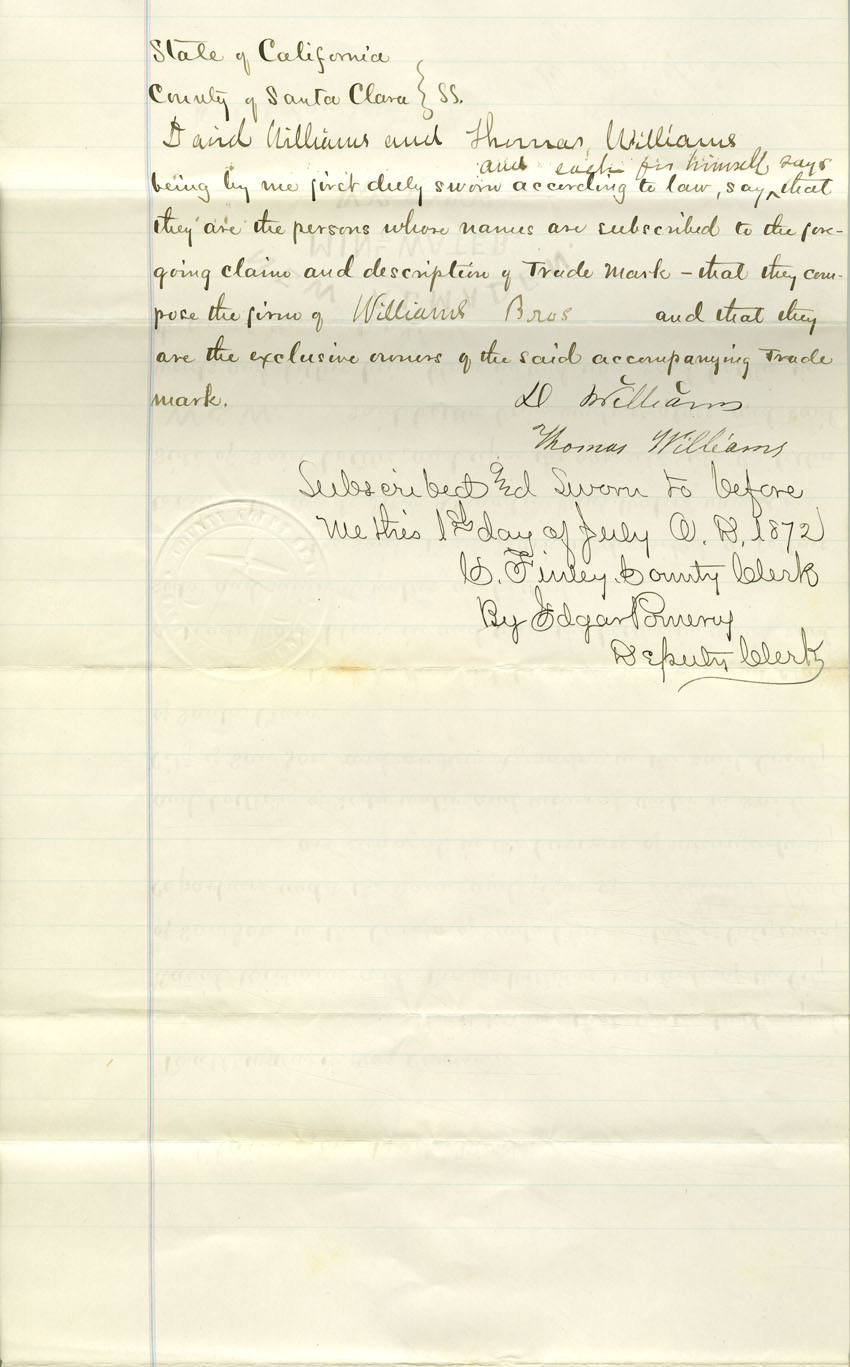 State of California
County of Santa Clara } SS.
David Williams and Thomas Williams
and each for himself says
being by me first duly sworn according to law, say ^ that
they are the persons whose names are subscribed to the fore-
going claim and description of Trade Mark – that they com-
pose the firm of Williams Bros and that they
are the exclusive owners of the said accompanying Trade
mark.
D Williams
Thomas Williams
Subscribed and Sworn to before
Me this 1st day of July A. D. 1872
C. Finley County Clerk
By Edgar Pomeroy
Deputy Clerk